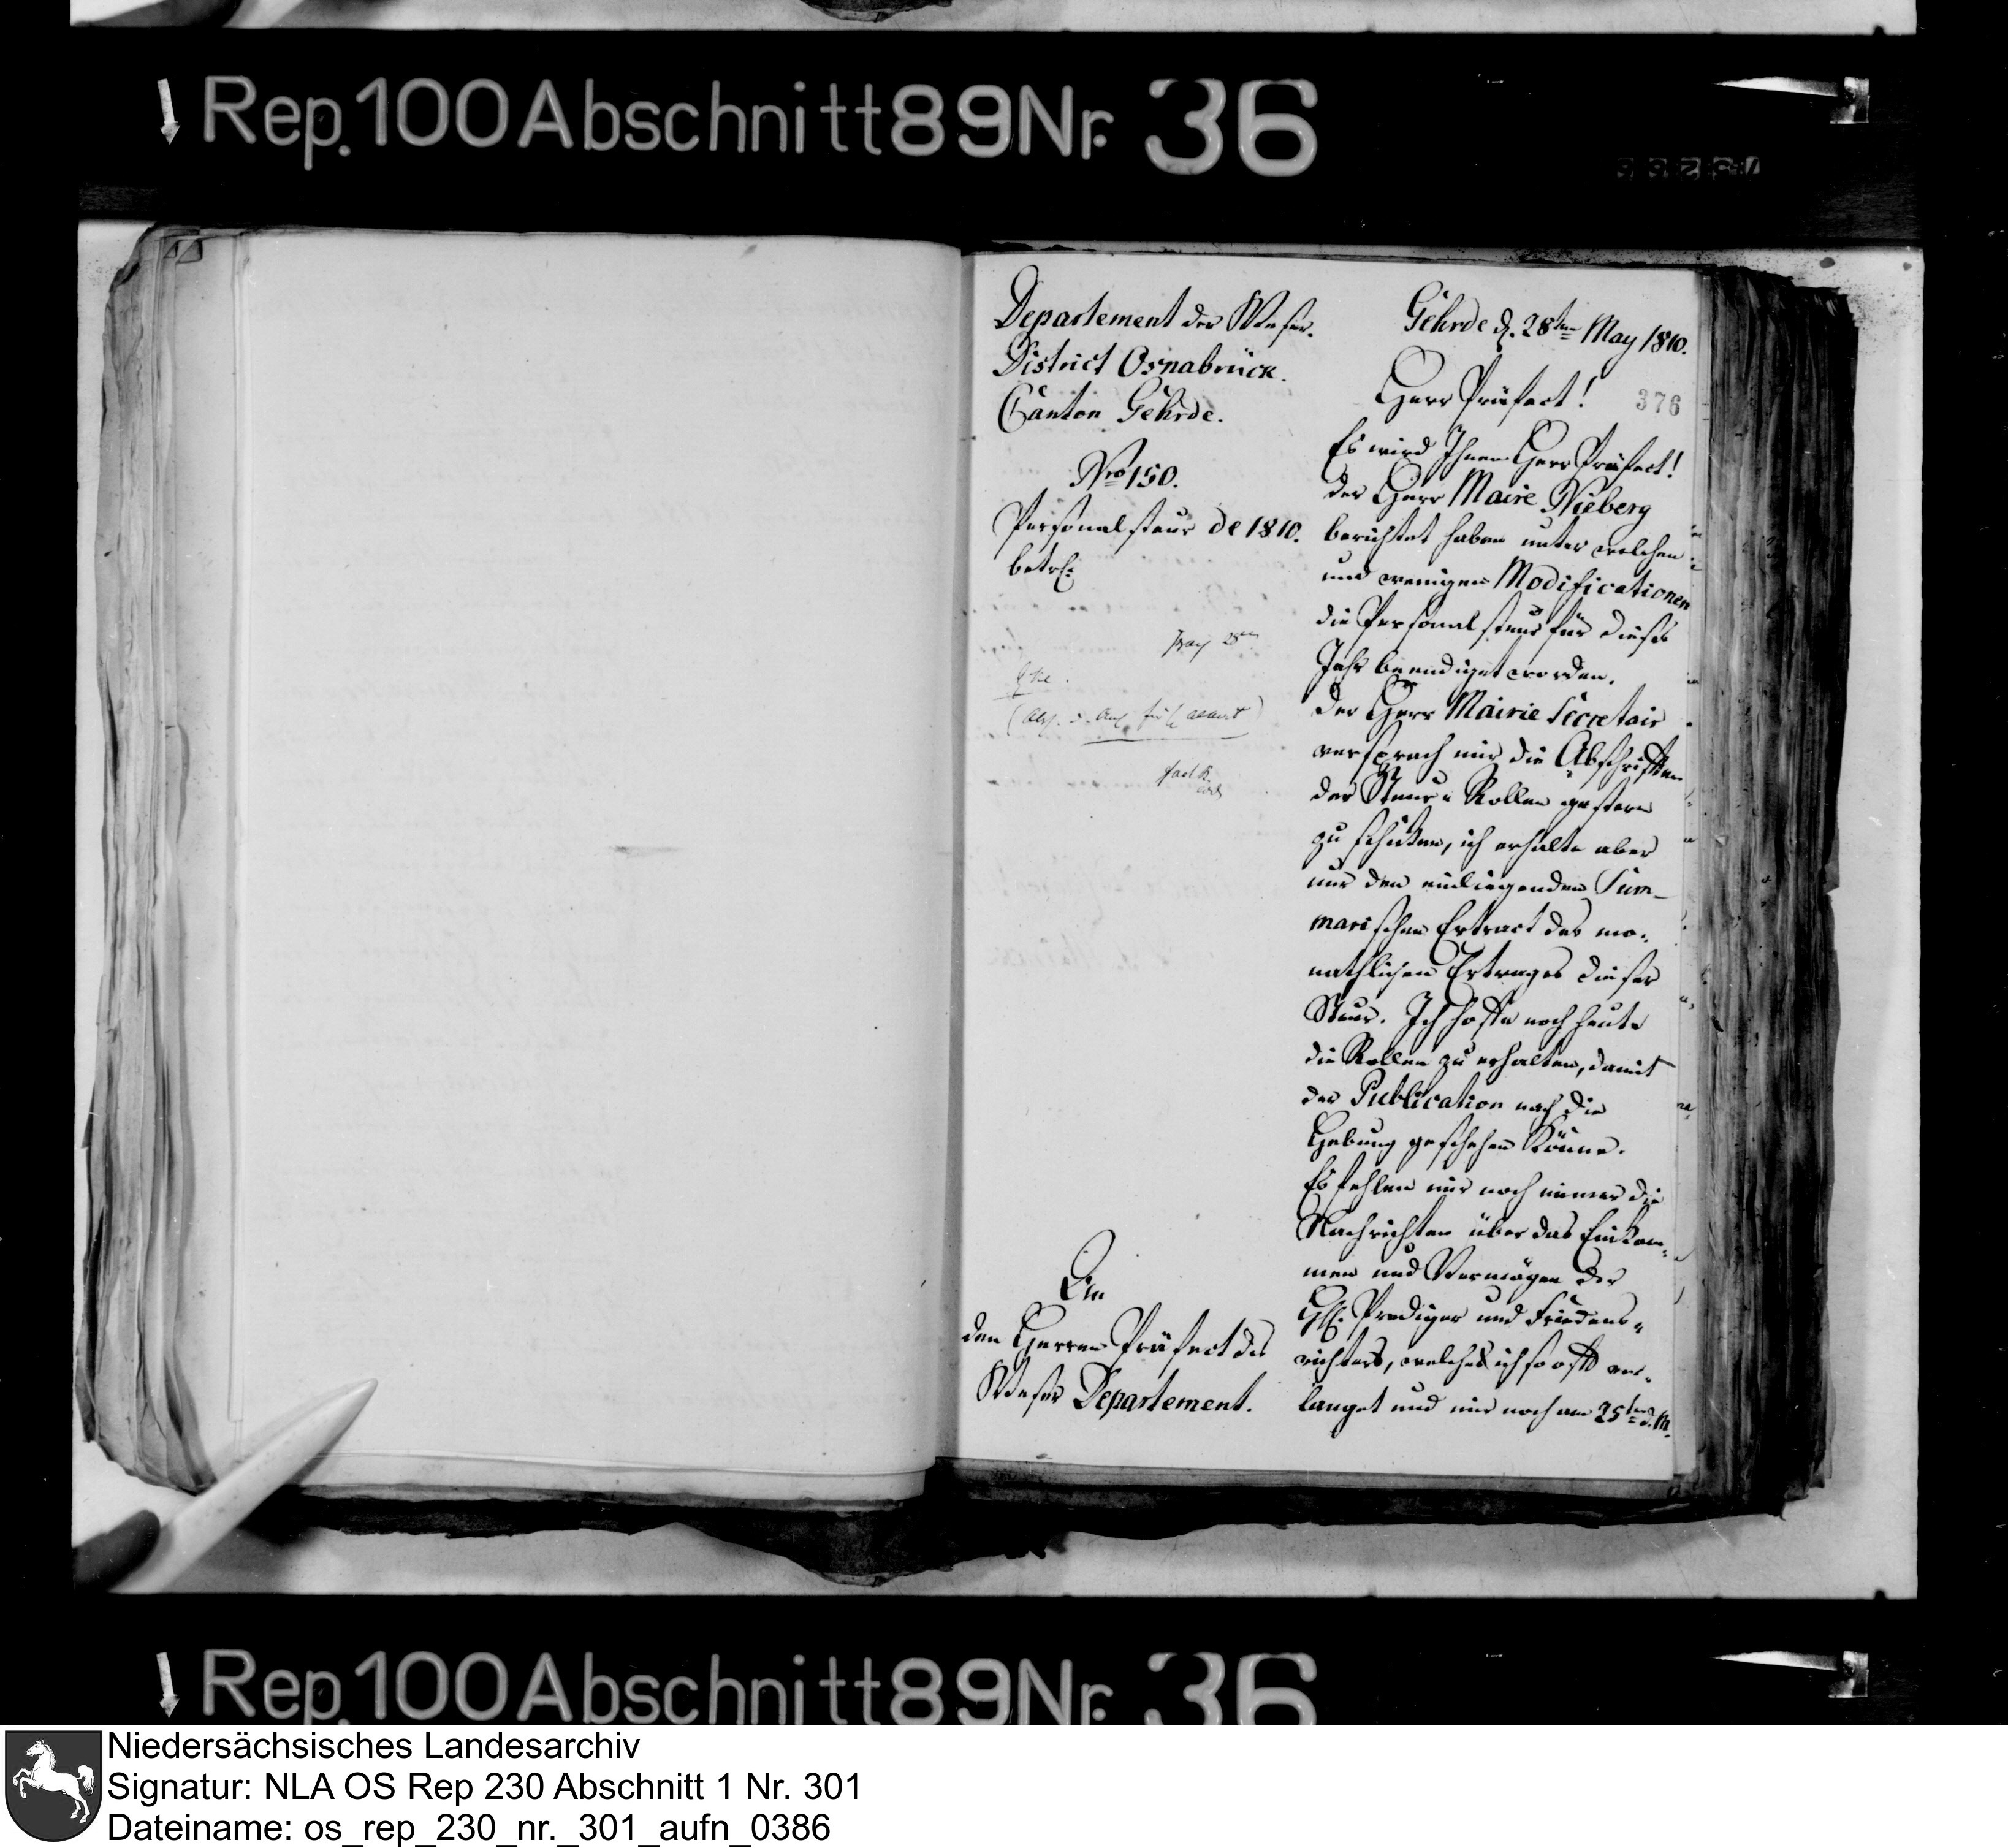 Rep. 100 Abschnitt 89 Nr. 36
Departement der Weser.
District Osnabrück.
Canton Gehrde.
Nro 150.
Personalsteur de 1810.
betr.
An
den Herren Präfect des
Weser Departement.
Gehrde d. 28ten May 1810.
Herr Präfect!
376
Es wird Ihnen Herr Präfect!
der Herr Maire Nieberg
berichtet haben unter welchen
und wenigen Modificationen
die Personalsteur für dieses
Jahr beendiget worden.
Der Herr Mairie Secretair
versprach mir die Abschriften
der Steur-Rollen gestern
zu schicken, ich erhalte aber
nur den einliegenden Sum-
marischen Extract des mo-
nathlichen Ertrages dieser
Steur. Ich hoffe noch heute
die Rollen zu erhalten, damit
der Publication nach die
Hebung geschehen könne.
Es fehlen mir noch immer die
Nachrichten über das Einkom-
men und Vermögen der
HH. Prediger und Friedens-
richters, welches ich so oft ver-
langet und mir noch am 25ten d. M.
Rep. 100 Abschnitt 89 Nr. 36
Niedersächsisches Landesarchiv
Signatur: NLA OS Rep 230 Abschnitt 1 Nr. 301
Dateiname: os_rep_230_nr._301_aufn_0386